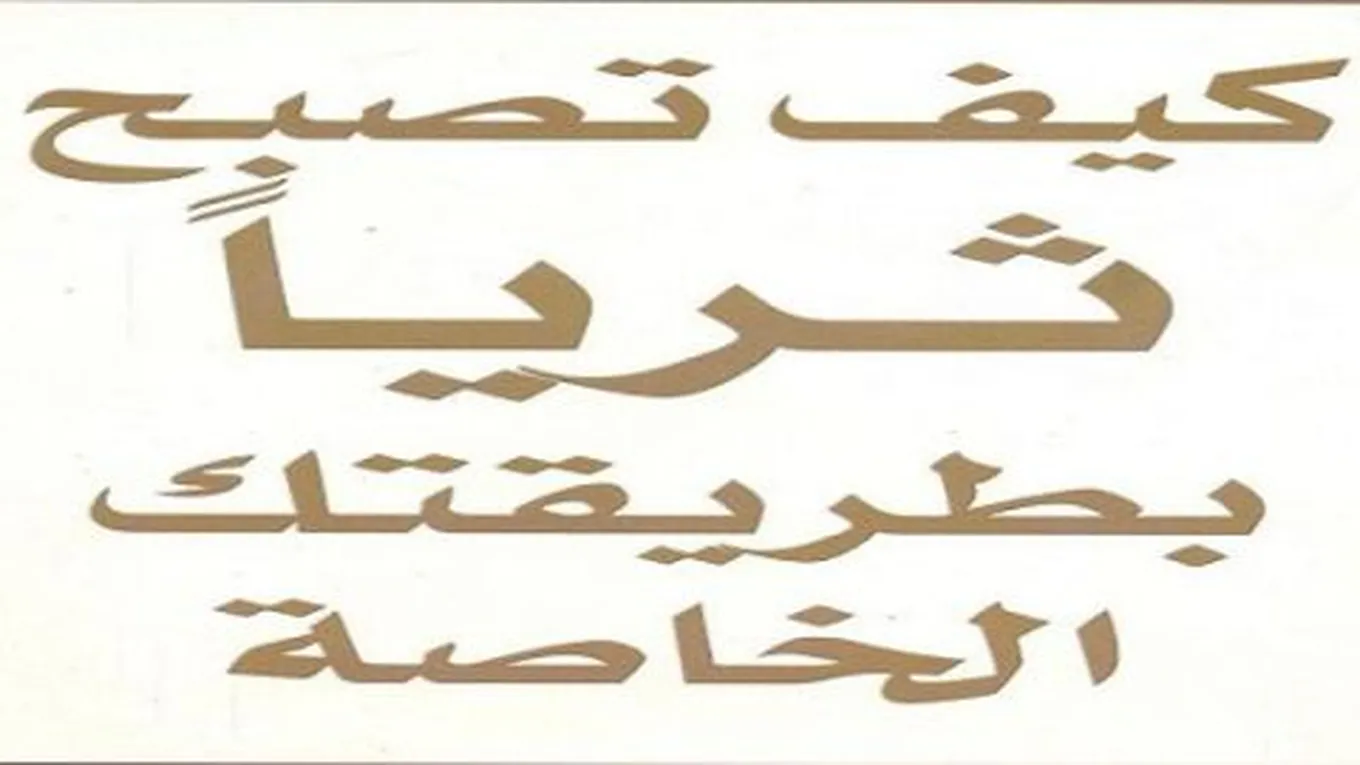 كيف تصبح
ثرياً
بطريقتك
الخاصة